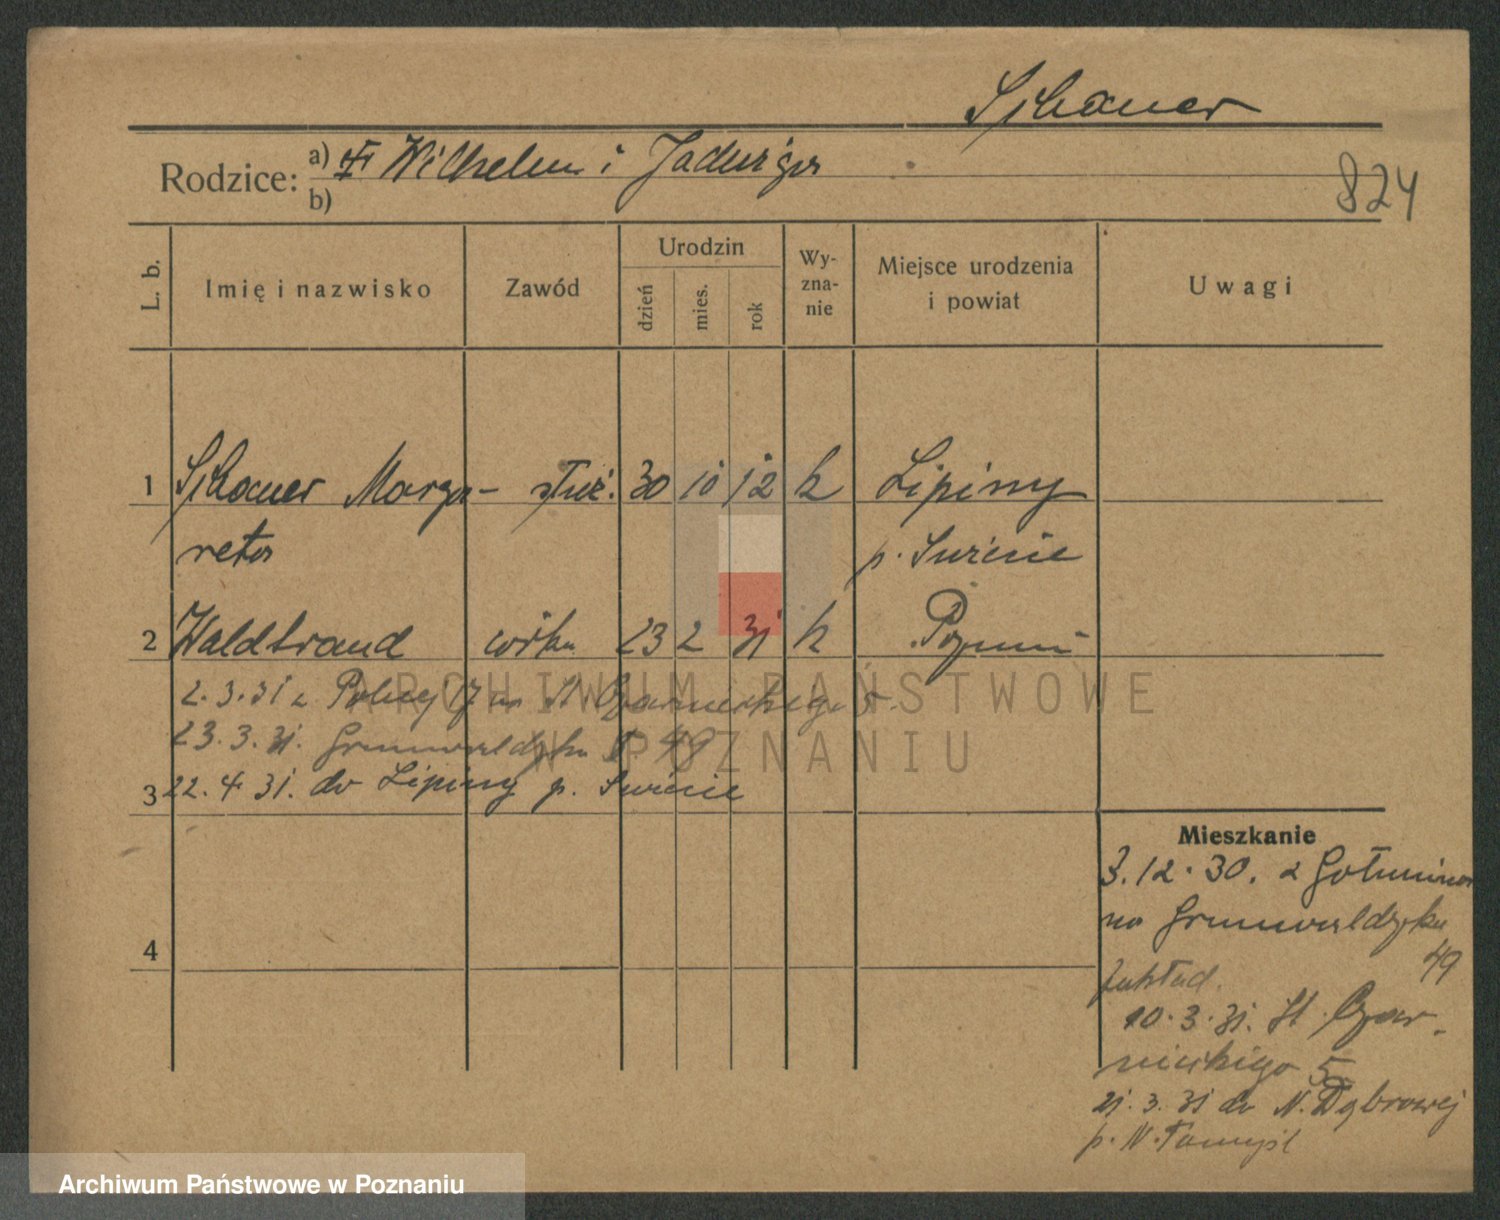 Schauer
Rodzice: a) Wilhelm i Jadwiga
b)
824
L. b.
Imię i nazwisko
Zawód
Urodzin
dzień
mies.
rok
Wy-
zna-
nie
Miejsce urodzenia
i powiat
Uwagi
1 Schauer Marga- służ. 30 10 12 k Lipiny
reta p.
2 Waldtraud córka 23 2 31 k Poznań
2.3.31 z Polnej 17 na St Czarnieckiego 5.
23.3.31. Grunwaldzka 49
3 22.4 31. do Lipiny p.
4
Mieszkanie
3.12.30. z
na Grunwaldzką
49
zakład.
10.3.31. St. Czar-
nieckiego 5
21.3.31 do N. Dąbrowej
p. N. Tomyśl
ARCHIWUM PAŃSTWOWE
W POZNANIU
Archiwum Państwowe w Poznaniu